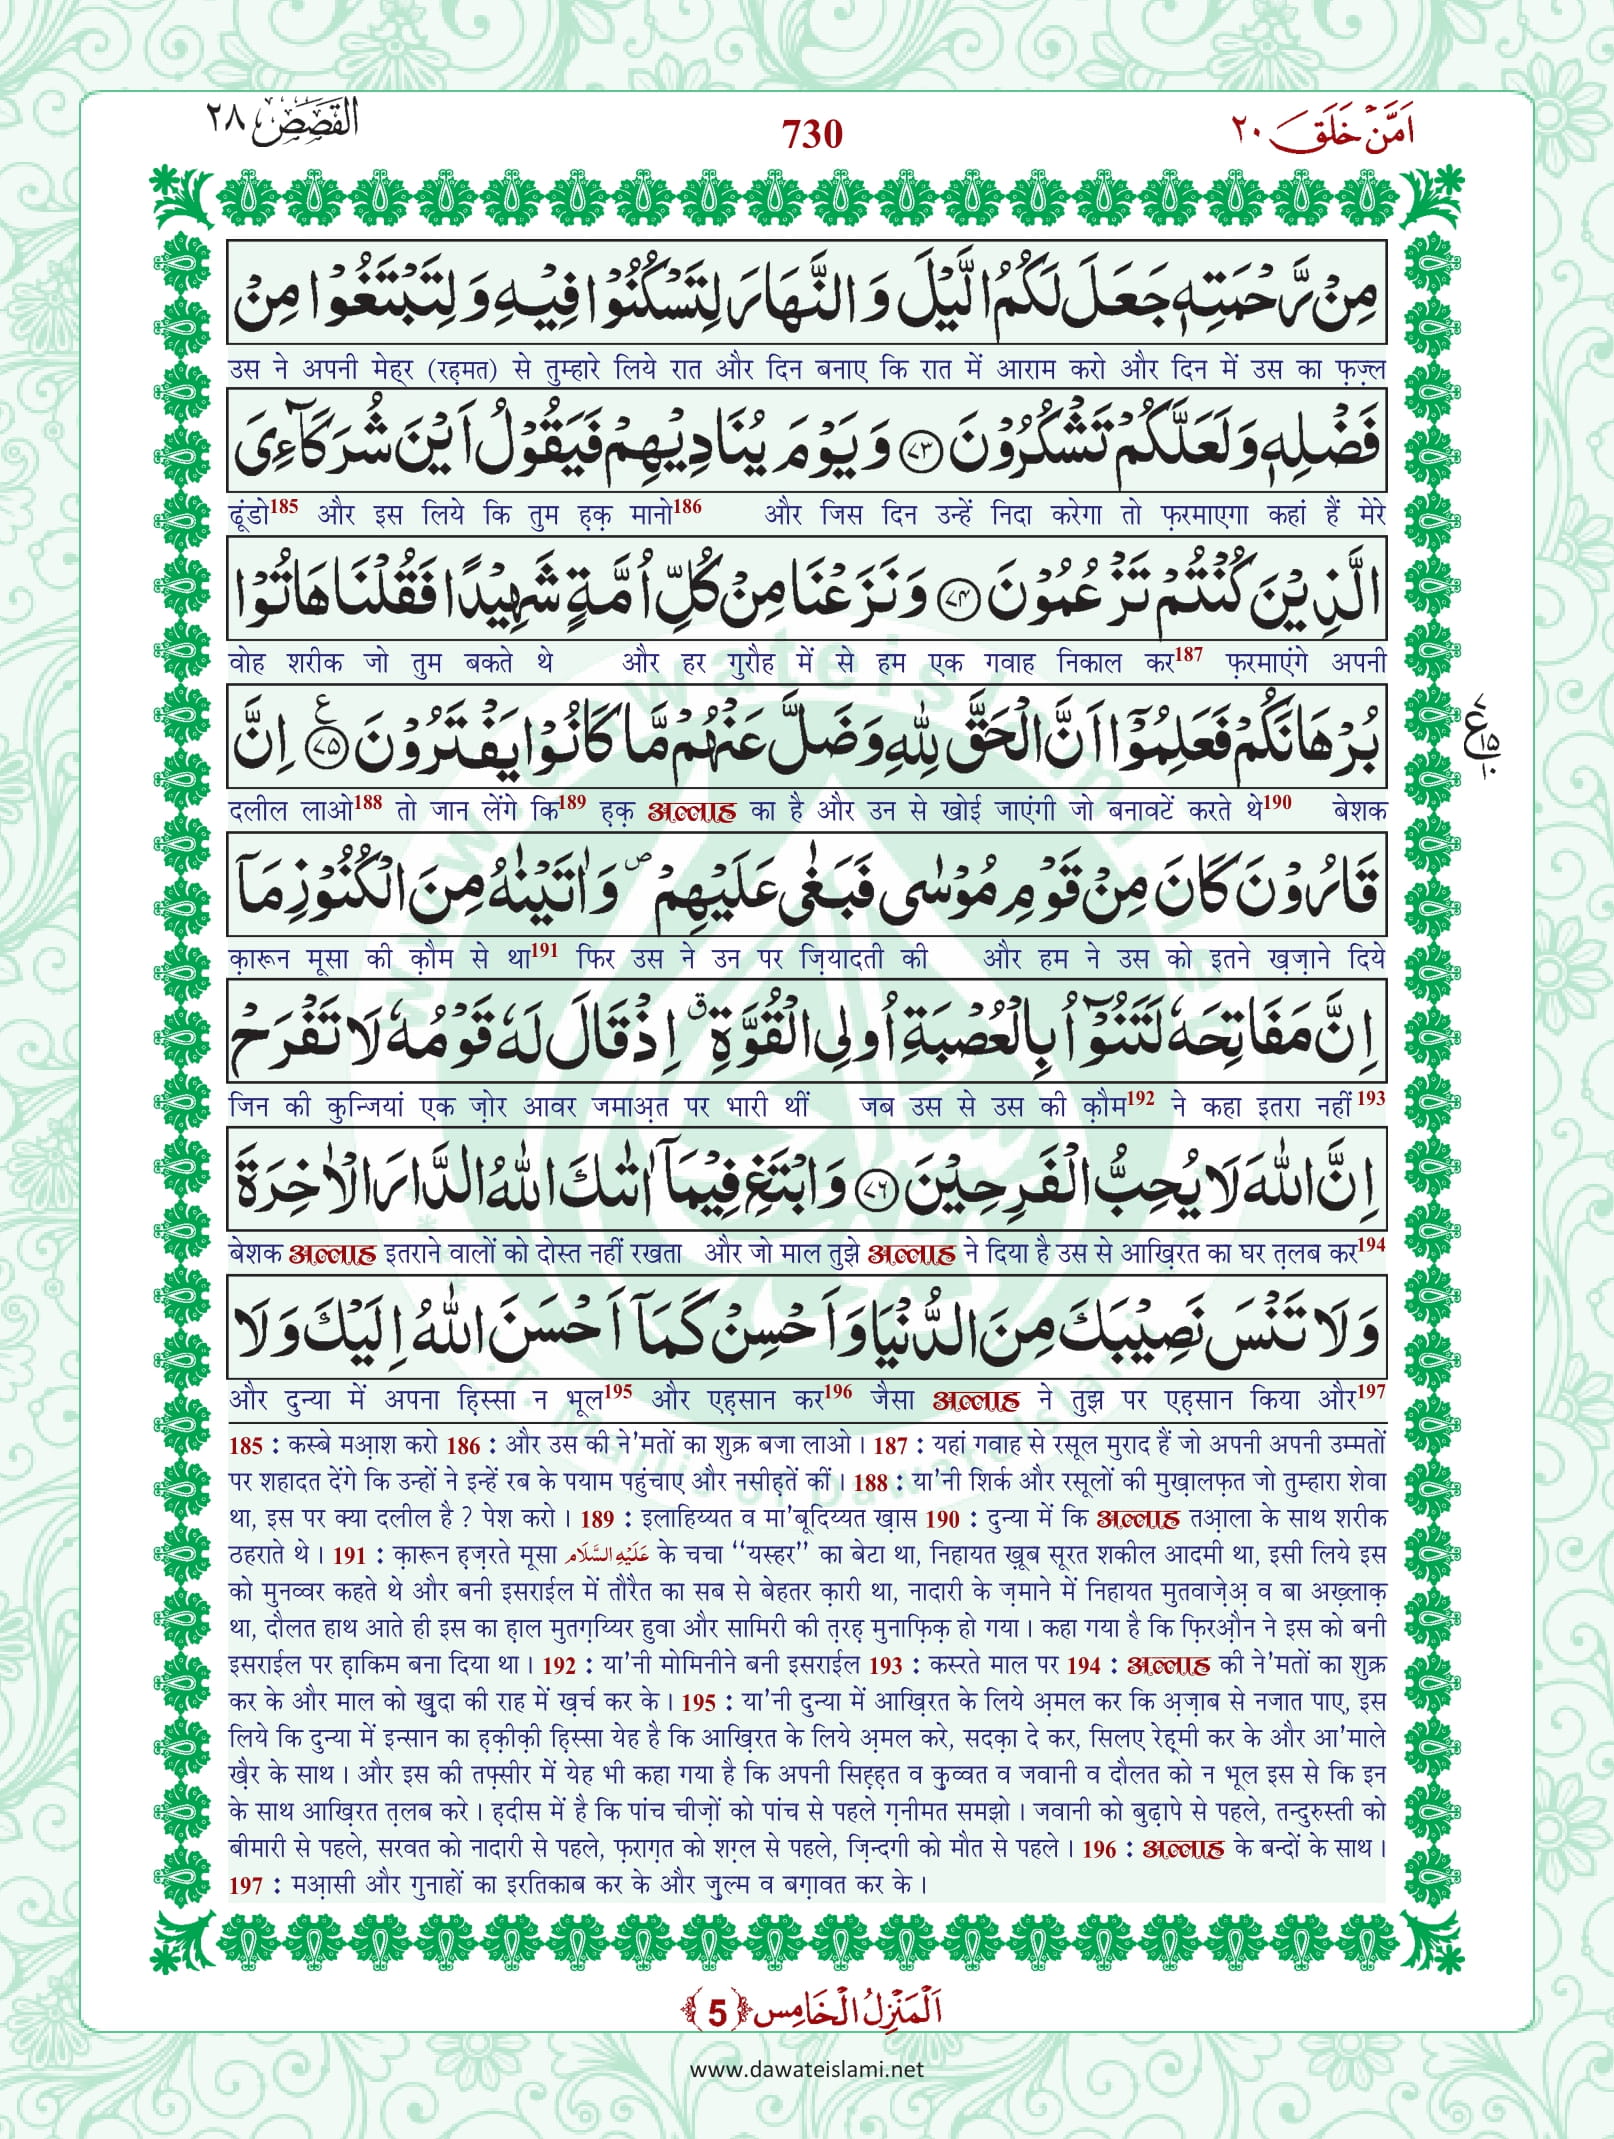 اَمَّنْ خَلَقَ ٢٠
730
القَصَص ٢٨
مِنْ رَّحْمَتِهٖ جَعَلَ لَكُمُ الَّیْلَ وَ النَّهَارَ لِتَسْكُنُوْا فِیْهِ وَ لِتَبْتَغُوْا مِنْ
उस ने अपनी मेह्र (रह़मत) से तुम्हारे लिये रात और दिन बनाए कि रात में आराम करो और दिन में उस का फ़ज़्ल
فَضْلِهٖ وَ لَعَلَّكُمْ تَشْكُرُوْنَ ﴿٧٣﴾ وَ یَوْمَ یُنَادِیْهِمْ فَیَقُوْلُ اَیْنَ شُرَكَآءِیَ
ढूंडो185 और इस लिये कि तुम ह़क़ मानो186 और जिस दिन उन्हें निदा करेगा तो फ़रमाएगा कहां हैं मेरे
الَّذِیْنَ كُنْتُمْ تَزْعُمُوْنَ ﴿٧٤﴾ وَ نَزَعْنَا مِنْ كُلِّ اُمَّةٍ شَهِیْدًا فَقُلْنَا هَاتُوْا
वोह शरीक जो तुम बकते थे और हर गुरौह में से हम एक गवाह निकाल कर187 फ़रमाएंगे अपनी
بُرْهَانَكُمْ فَعَلِمُوْۤا اَنَّ الْحَقَّ لِلّٰهِ وَ ضَلَّ عَنْهُمْ مَّا كَانُوْا یَفْتَرُوْنَ ﴿٧٥﴾ ع اِنَّ
ع ٧ ١٥ ١٠
दलील लाओ188 तो जान लेंगे कि189 ह़क़ अल्लाह का है और उन से खोई जाएंगी जो बनावटें करते थे190 बेशक
قَارُوْنَ كَانَ مِنْ قَوْمِ مُوْسٰى فَبَغٰى عَلَیْهِمْ ۪ وَ اٰتَیْنٰهُ مِنَ الْكُنُوْزِ مَاۤ
क़ारून मूसा की क़ौम से था191 फिर उस ने उन पर ज़ियादती की और हम ने उस को इतने ख़ज़ाने दिये
اِنَّ مَفَاتِحَهٗ لَتَنُوْٓاُ بِالْعُصْبَةِ اُولِی الْقُوَّةِ ۗ اِذْ قَالَ لَهٗ قَوْمُهٗ لَا تَفْرَحْ
जिन की कुन्जियां एक ज़ोर आवर जमाअ़त पर भारी थीं जब उस से उस की क़ौम192 ने कहा इतरा नहीं193
اِنَّ اللّٰهَ لَا یُحِبُّ الْفَرِحِیْنَ ﴿٧٦﴾ وَ ابْتَغِ فِیْمَاۤ اٰتٰىكَ اللّٰهُ الدَّارَ الْاٰخِرَةَ
बेशक अल्लाह इतराने वालों को दोस्त नहीं रखता और जो माल तुझे अल्लाह ने दिया है उस से आख़िरत का घर त़लब कर194
وَ لَا تَنْسَ نَصِیْبَكَ مِنَ الدُّنْیَا وَ اَحْسِنْ كَمَاۤ اَحْسَنَ اللّٰهُ اِلَیْكَ وَ لَا
और दुन्या में अपना हिस्सा न भूल195 और एह़सान कर196 जैसा अल्लाह ने तुझ पर एह़सान किया और197
185 : कस्बे मआ़श करो 186 : और उस की ने'मतों का शुक्र बजा लाओ। 187 : यहां गवाह से रसूल मुराद हैं जो अपनी अपनी उम्मतों
पर शहादत देंगे कि उन्हों ने इन्हें रब के पयाम पहुंचाए और नसीह़तें कीं। 188 : या'नी शिर्क और रसूलों की मुख़ालफ़त जो तुम्हारा शेवा
था, इस पर क्या दलील है ? पेश करो। 189 : इलाहिय्यत व मा'बूदिय्यत ख़ास 190 : दुन्या में कि अल्लाह तआ़ला के साथ शरीक
ठहराते थे। 191 : क़ारून ह़ज़रते मूसा عَلَيْهِ السَّلَام के चचा ‘‘यस्हर’’ का बेटा था, निहायत ख़ूब सूरत शकील आदमी था, इसी लिये इस
को मुनव्वर कहते थे और बनी इसराईल में तौरैत का सब से बेहतर क़ारी था, नादारी के ज़माने में निहायत मुतवाज़ेअ़ व बा अख़्लाक़
था, दौलत हाथ आते ही इस का ह़ाल मुतग़य्यिर हुवा और सामिरी की त़रह़ मुनाफ़िक़ हो गया। कहा गया है कि फ़िरऔ़न ने इस को बनी
इसराईल पर ह़ाकिम बना दिया था। 192 : या'नी मोमिनीने बनी इसराईल 193 : कस्रते माल पर 194 : अल्लाह की ने'मतों का शुक्र
कर के और माल को ख़ुदा की राह में ख़र्च कर के। 195 : या'नी दुन्या में आख़िरत के लिये अ़मल कर कि अ़ज़ाब से नजात पाए, इस
लिये कि दुन्या में इन्सान का ह़क़ीक़ी हिस्सा येह है कि आख़िरत के लिये अ़मल करे, सदक़ा दे कर, सिलए रेह़्मी कर के और आ'माले
ख़ैर के साथ। और इस की तफ़्सीर में येह भी कहा गया है कि अपनी सिह़्ह़त व कुव्वत व जवानी व दौलत को न भूल इस से कि इन
के साथ आख़िरत त़लब करे। ह़दीस में है कि पांच चीज़ों को पांच से पहले ग़नीमत समझो। जवानी को बुढ़ापे से पहले, तन्दुरुस्ती को
बीमारी से पहले, सरवत को नादारी से पहले, फ़राग़त को शग़्ल से पहले, ज़िन्दगी को मौत से पहले। 196 : अल्लाह के बन्दों के साथ।
197 : मआ़सी और गुनाहों का इरतिकाब कर के और ज़ुल्म व बग़ावत कर के।
اَلْمَنْزِلُ الْخَامِس ﴿5﴾
www.dawateislami.net